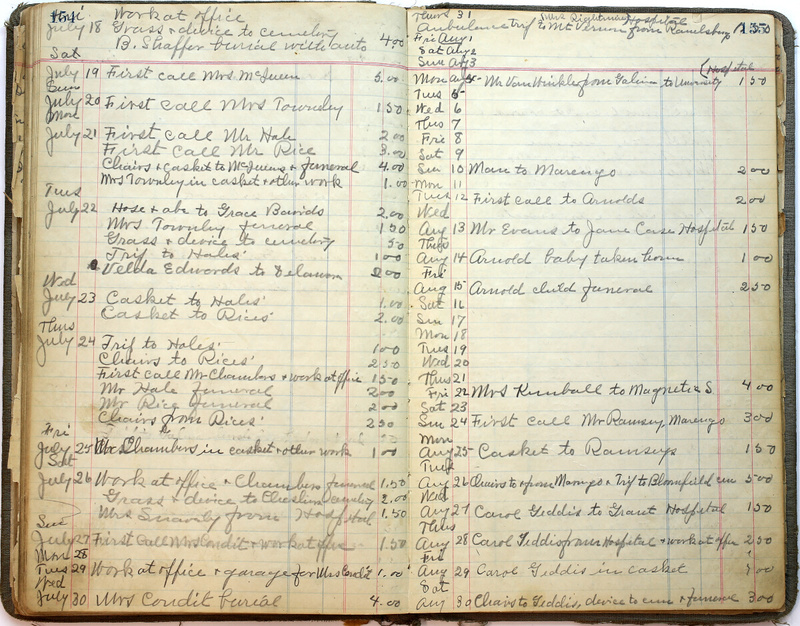 154
Fri Work at office
July 18 Grass & device to cemetery
B. Shaffer burial with auto 4 00
Sat
July 19 First call Mrs McJuen 5.00
Sun
July 20 First call Mrs Townley 1 50
Mon
July 21 First call Mr Hale 2 00
First call Mr Rice 3.00
Chairs & casket to McJuens & funeral 4.00
Mrs Townley in casket & other work 1.00
Tues
July 22 Hose & abc to Grace Bavids 2.00
Mrs Townley funeral 1 50
Grass & device to cemetery 50
Trip to Hales' 1 00
Velda Edwards to Delaware 2 00
Wed
July 23 Casket to Hales' 1.00
Casket to Rices' 2.00
Thurs
July 24 Trip to Hales' 1 00
Chairs to Rices' 2 50
First call Mr Chambers & work at office 1 50
Mr Hale funeral 2 00
Mr Rice funeral 2 00
Chairs from Rices' 2 50
Fri
July 25 Mr Chambers in casket & other work 1 00
Sat
July 26 Work at office & Chambers funeral 1.50
Grass & device to cemetery 2.00
Mrs Snavely from Hospital 1.50
Sun
July 27 First call Mrs Condit & work at office 1.50
Mon 28
Tues 29 Work at office & garage for Mrs Condit 1.00
Wed
July 30 Mrs Condit burial 4.00
155
Thurs 31 (Mrs Rightmire) Hospital
Ambulance trip to Mt Vernon from
Fri Aug 1
Sat Aug 2
Sun Aug 3
(Hospital
Mon Aug Mr VanWinkle from Galena to University 1 50
Tues 5
Wed 6
Thus 7
Fri 8
Sat 9
Sun 10 Man to Marengo 2 00
Mon 11
Tues 12 First call to Arnolds 2 00
Wed
Aug 13 Mr Evans to Jane Case Hospital 1 50
Thus
Aug 14 Arnold baby taken home 1 00
Fri
Aug 15 Arnold child funeral 2 50
Sat 16
Sun 17
Mon 18
Tues 19
Wed 20
Thus 21
Fri 22 Mrs Kimball to Magnetic S. 4 00
Sat 23
Sun 24 First call Mr Ramsey, Marengo 3 00
Mon
Aug 25 Casket to Ramseys 1 50
Tues
Aug 26 Chairs to & from Marengo & Trip to Bloomfield cem 5 00
Wed
Aug 27 Carol Geddis to Grant Hospital 1 50
Thus
Aug 28 Carol Geddis from Hospital & work at office 2 50
Fri
Aug 29 Carol Geddis in casket 1 00
Sat
Aug 30 Chairs to Geddis, device to cem & funeral 3 00